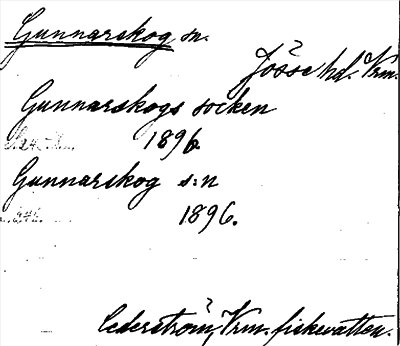 Gunnarskog sn.
Jösse hd. Vrm.
Gunnarskogs socken
1896
Gunnarskog s:n
1896.
Cederström, Vrm. fiskevatten.